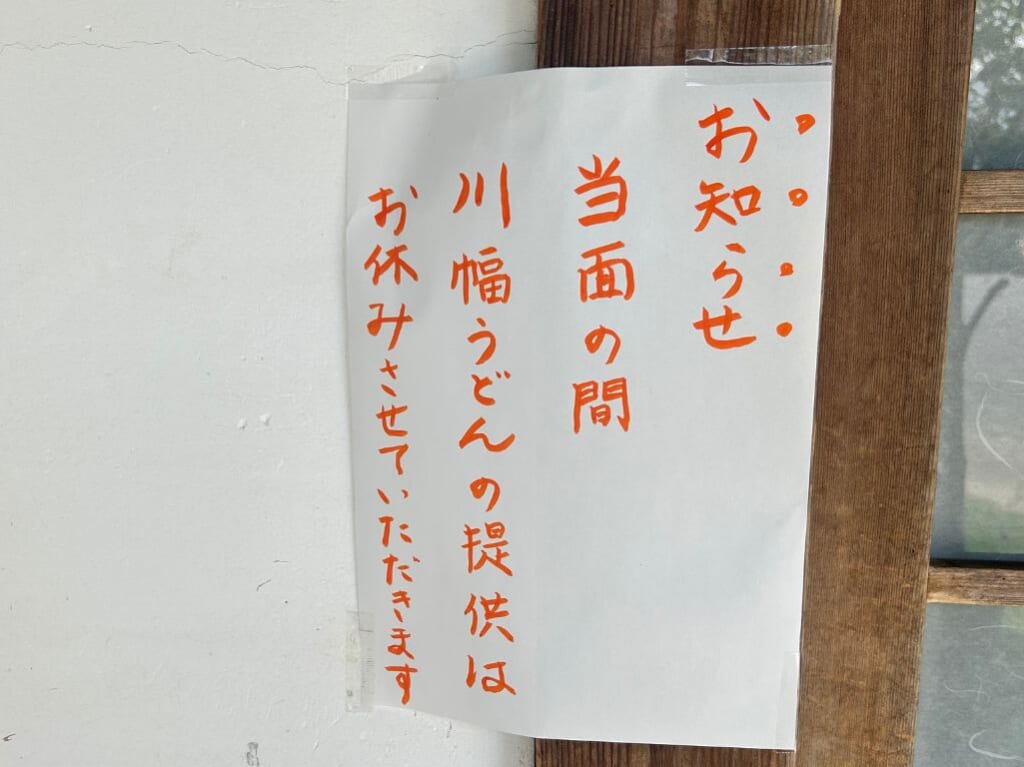 お知らせ
当面の間
川幅うどんの提供は
お休みさせていただきます